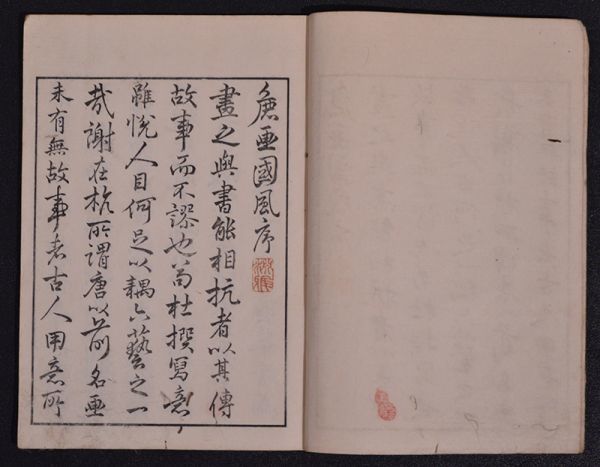 麁画國風序
畫之與書能相抗者以其傳
故事而不謬也苟杜撰寫意
雖悅人目何足以耦六藝之一
哉謝在杭所謂唐以前名画
未有無故事者古人用意所